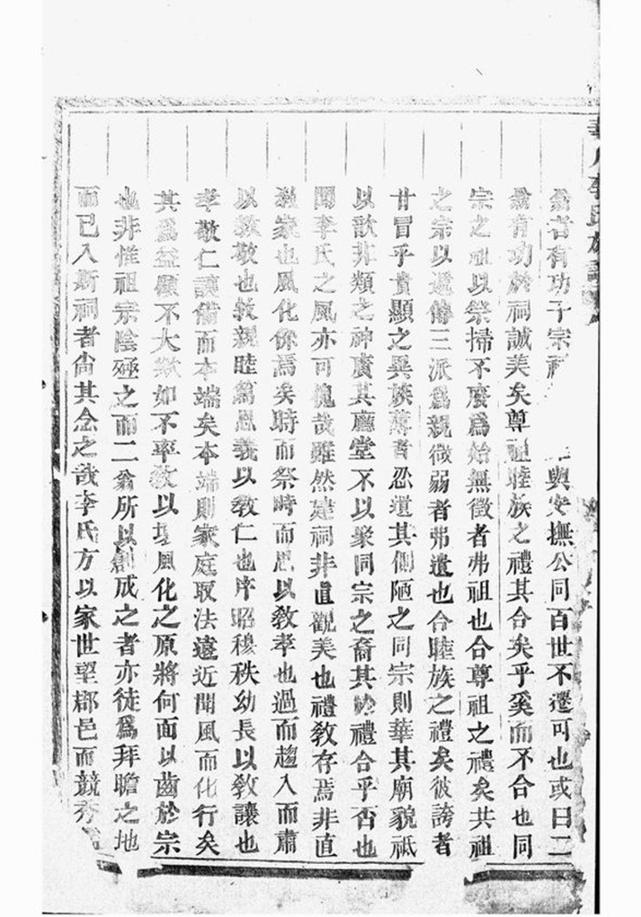 翁者有功于宗祠 與安撫公同百世不遷可也或曰二
翁有功於祠誠美矣尊祖睦族之禮其合矣乎奚而不合也同
宗之祖以祭掃不廢為始無徵者弗祖也合尊祖之禮矣共祖
之宗以遞傳三派為親微弱者弗遺也合睦族之禮矣彼誇者
甘冒乎貴顯之異族薄者忍遺其側陋之同宗則華其廟貌祗
以歆非類之神廣其廳堂不以聚同宗之裔其於禮合乎否也
聞李氏之風亦可愧哉雖然建祠非直觀美也禮教存焉非直
教家也風化係焉矣時而祭時而思以教孝也過而趨入而肅
以教敬也敦親睦篤恩義以教仁也序昭穆秩幼長以教讓也
孝敬仁讓備而本端矣本端則家庭取法遠近聞風而化行矣
其為益顧不大歟如不率教以壞風化之原將何面以齒於宗
也非惟祖宗陰殛之而二翁所以創成之者亦徒為拜瞻之地
而已入斯祠者尚其念之哉李氏方以家世望郡邑而競秀
李氏族譜